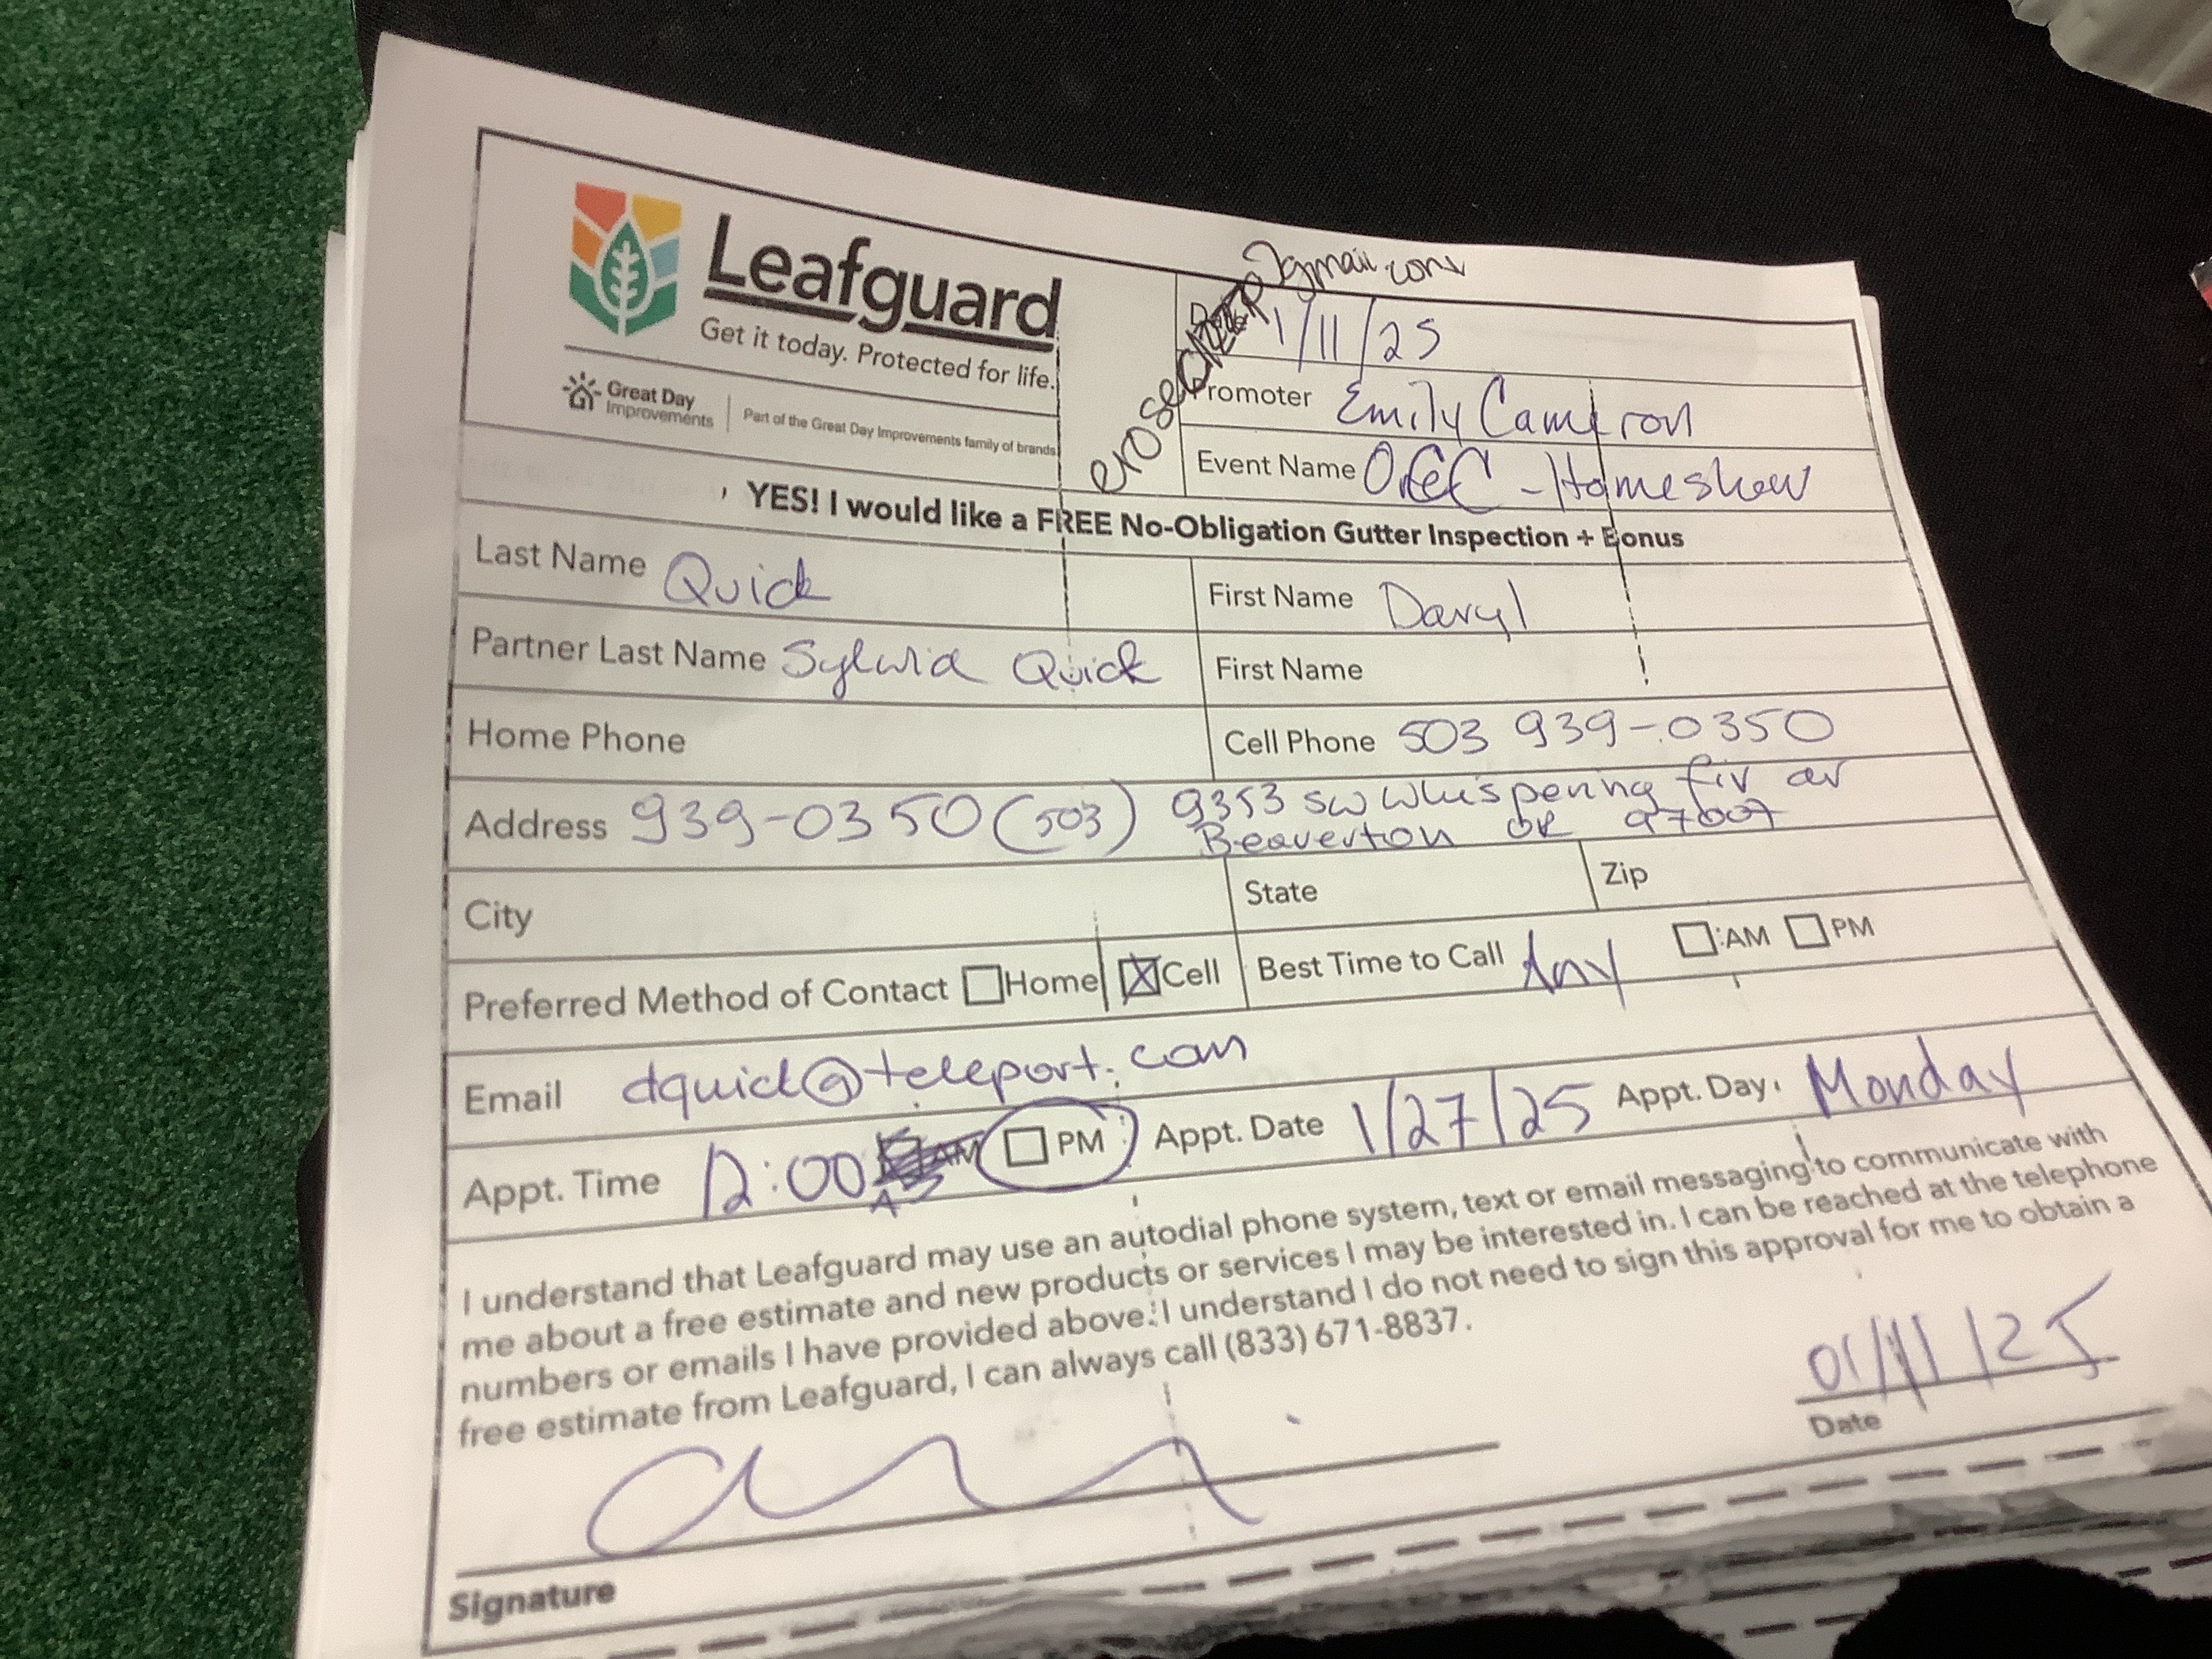 Leafguard
Get it today. Protected for life.
Great Day Improvements | Part of the Great Day Improvements family of brands
@gmail.com
1/11/25
Promoter Emily Cameron
Event Name OCC - Homeshow
YES! I would like a FREE No-Obligation Gutter Inspection + Bonus
Last Name Quick First Name Daryl
Partner Last Name Sylwia Quick First Name
Home Phone Cell Phone 503 939-0350
Address 939-0350 (503) 9353 SW Whispering fir av
Beaverton OR 97007
City State Zip
Preferred Method of Contact Home Cell Best Time to Call Any AM PM
Email dquick@teleport.com
Appt. Time 12:00 AM PM Appt. Date 1/27/25 Appt. Day Monday
I understand that Leafguard may use an autodial phone system, text or email messaging to communicate with
me about a free estimate and new products or services I may be interested in. I can be reached at the telephone
numbers or emails I have provided above. I understand I do not need to sign this approval for me to obtain a
free estimate from Leafguard, I can always call (833) 671-8837.
01/11/25
Signature Date